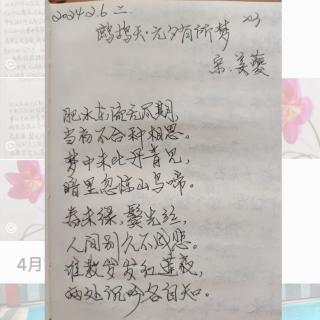 2024.2.6 二
203
鹧鸪天·元夕有所梦
宋.姜夔
肥水东流无尽期,
当初不合种相思。
梦中未比丹青见,
暗里忽惊山鸟啼。
春未绿,鬓先丝,
人间别久不成悲。
谁教岁岁红莲夜,
两处沉吟各自知。
4月